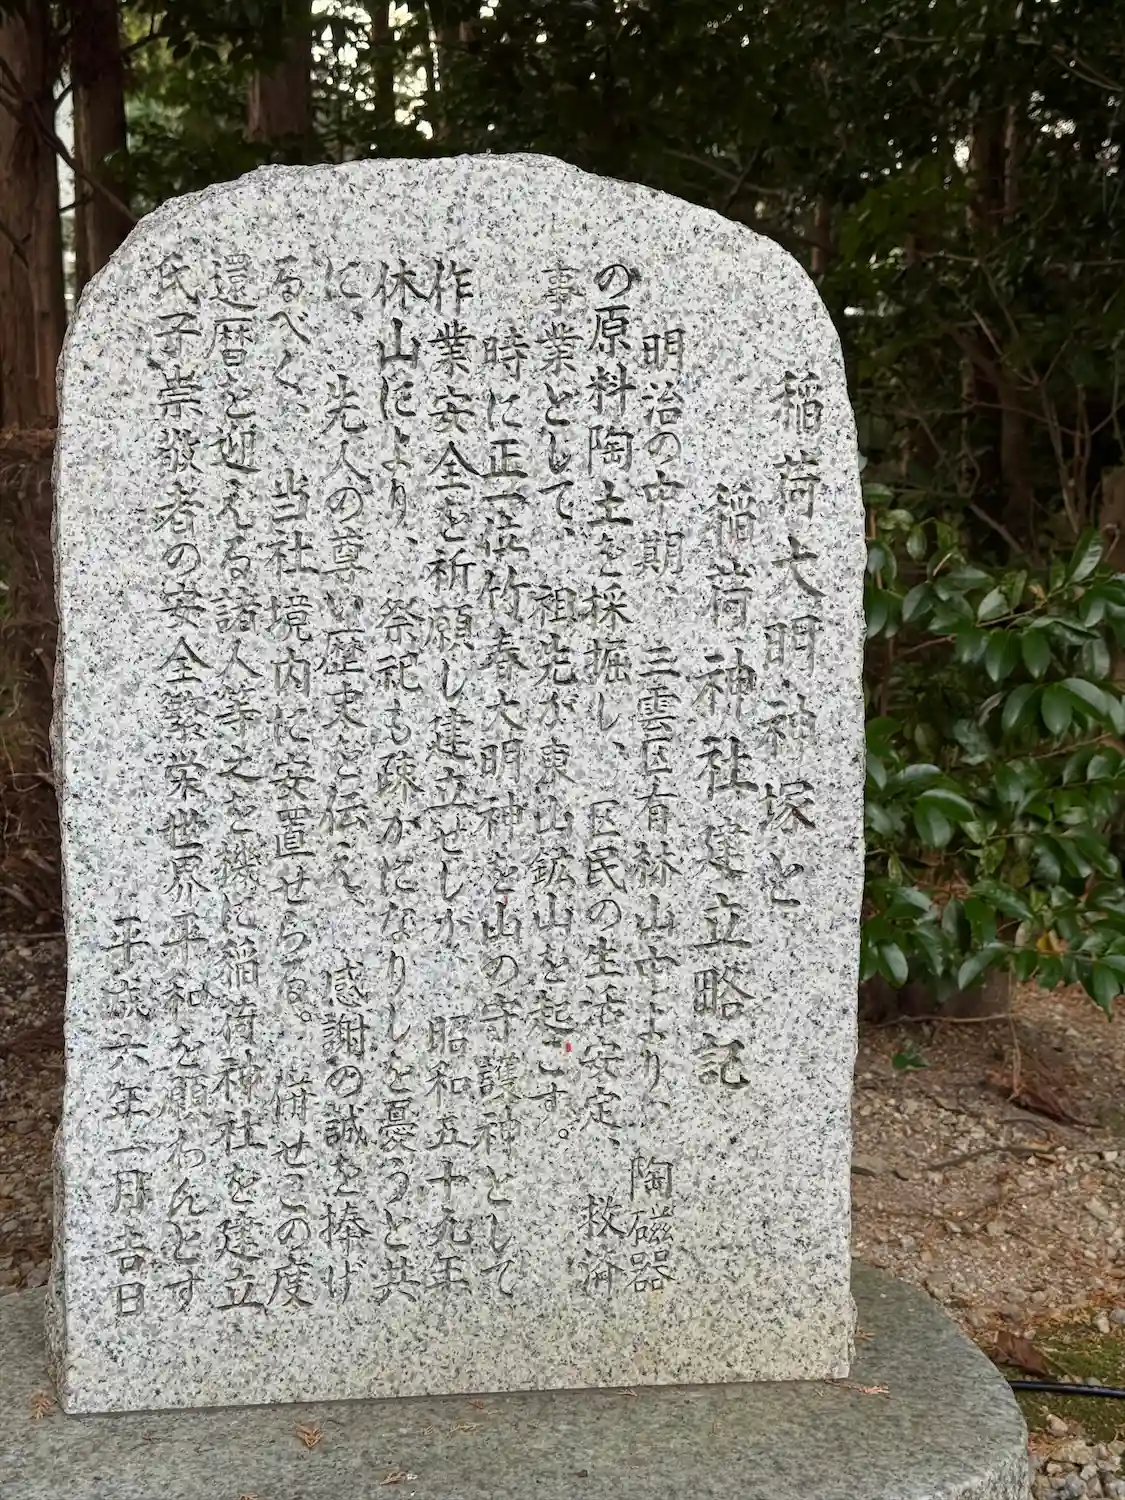 稲荷大明神塚と
稲荷神社建立略記
明治の中期、三雲区有林山中より、陶磁器
の原料陶土を採掘し、区民の生活安定、救済
事業として、祖先が東山鉱山を起こす。
時に正一位竹春大明神を山の守護神として
作業安全を祈願し建立せしが、昭和五十九年
休山により、祭祀も疎かになりしを憂うと共
に、先人の尊い歴史を伝え、感謝の誠を捧げ
るべく、当社境内に安置せらる。併せこの度
還暦を迎える諸人等之を機に稲荷神社を建立
氏子崇敬者の安全繁栄世界平和を願わんとす
平成六年一月吉日